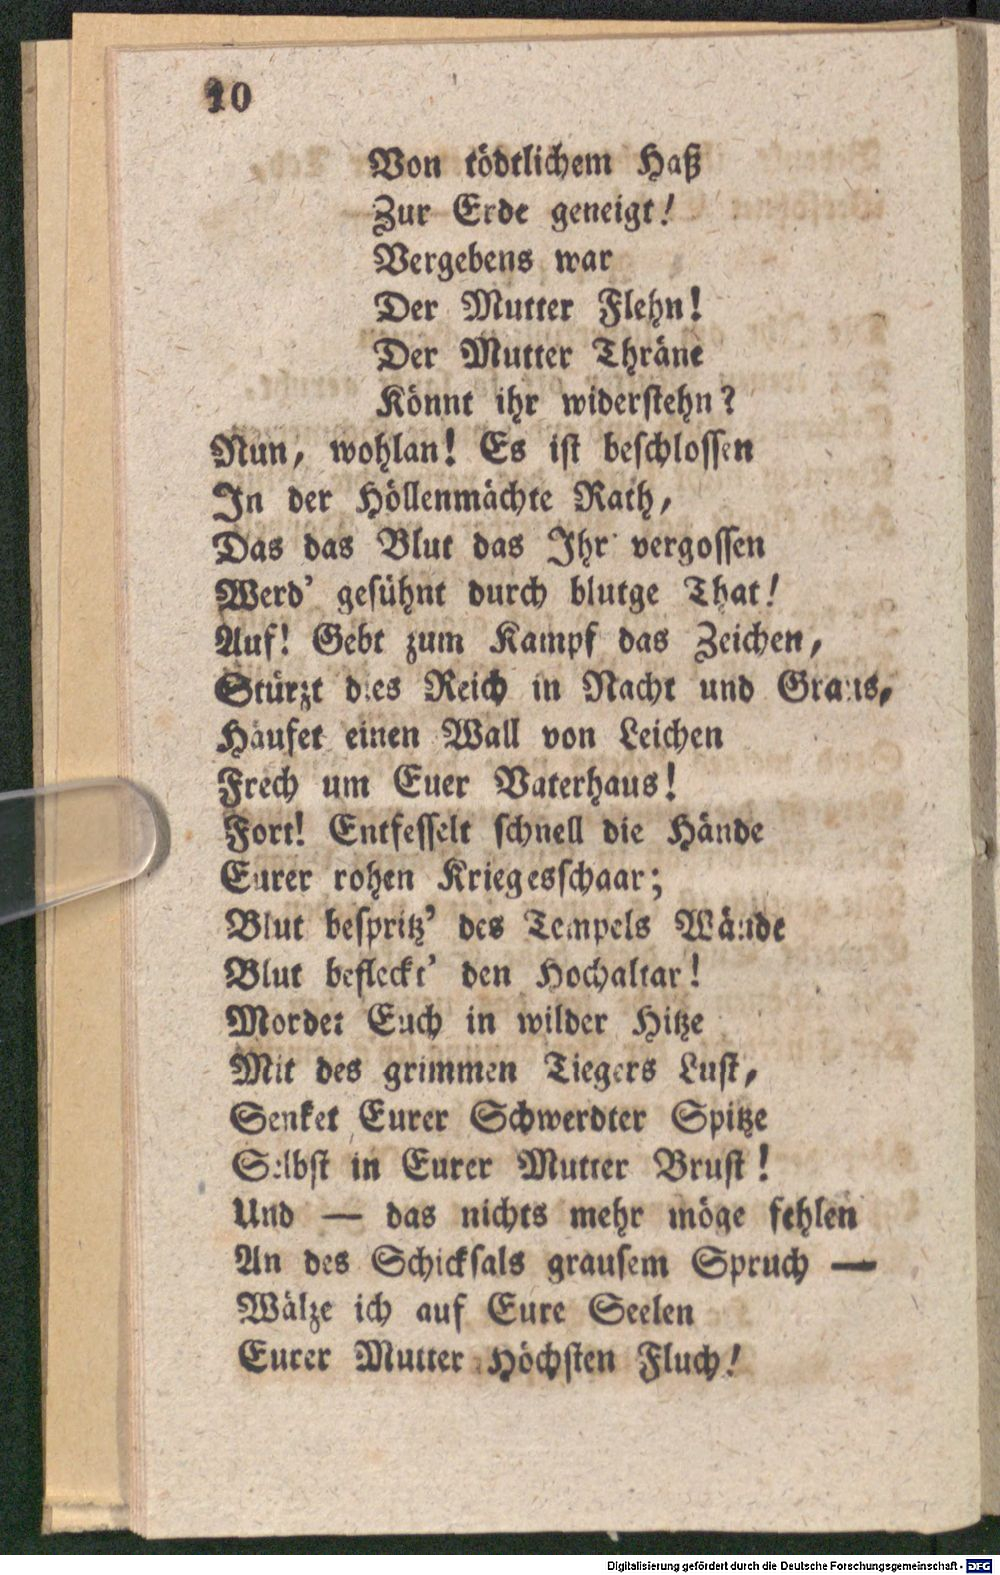 10
Von tödtlichem Haß
Zur Erde geneigt!
Vergebens war
Der Mutter Flehn!
Der Mutter Thräne
Könnt ihr widerstehn?
Nun, wohlan! Es ist beschlossen
In der Höllenmächte Rath,
Das das Blut das Ihr vergossen
Werd' gesühnt durch blutge That!
Auf! Gebt zum Kampf das Zeichen,
Stürzt dies Reich in Nacht und Graus,
Häufet einen Wall von Leichen
Frech um Euer Vaterhaus!
Fort! Entfesselt schnell die Hände
Eurer rohen Kriegesschaar;
Blut bespritz' des Tempels Wände
Blut befleckt' den Hochaltar!
Mordet Euch in wilder Hitze
Mit des grimmen Tiegers Lust,
Senket Eurer Schwerdter Spitze
Selbst in Eurer Mutter Brust!
Und — das nichts mehr möge fehlen
An des Schicksals grausem Spruch —
Wälze ich auf Eure Seelen
Eurer Mutter Höchsten Fluch!
Digitalisierung gefördert durch die Deutsche Forschungsgemeinschaft - DFG